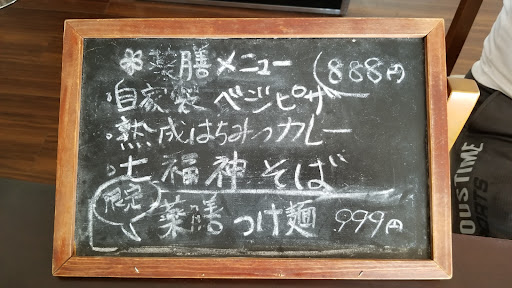 ❋薬膳メニュー (888円
・自家製 ベジピザ
・熟成はちみつカレー
・七福神そば
限定 薬膳つけ麺 999円
OUSTIME
SPORTS